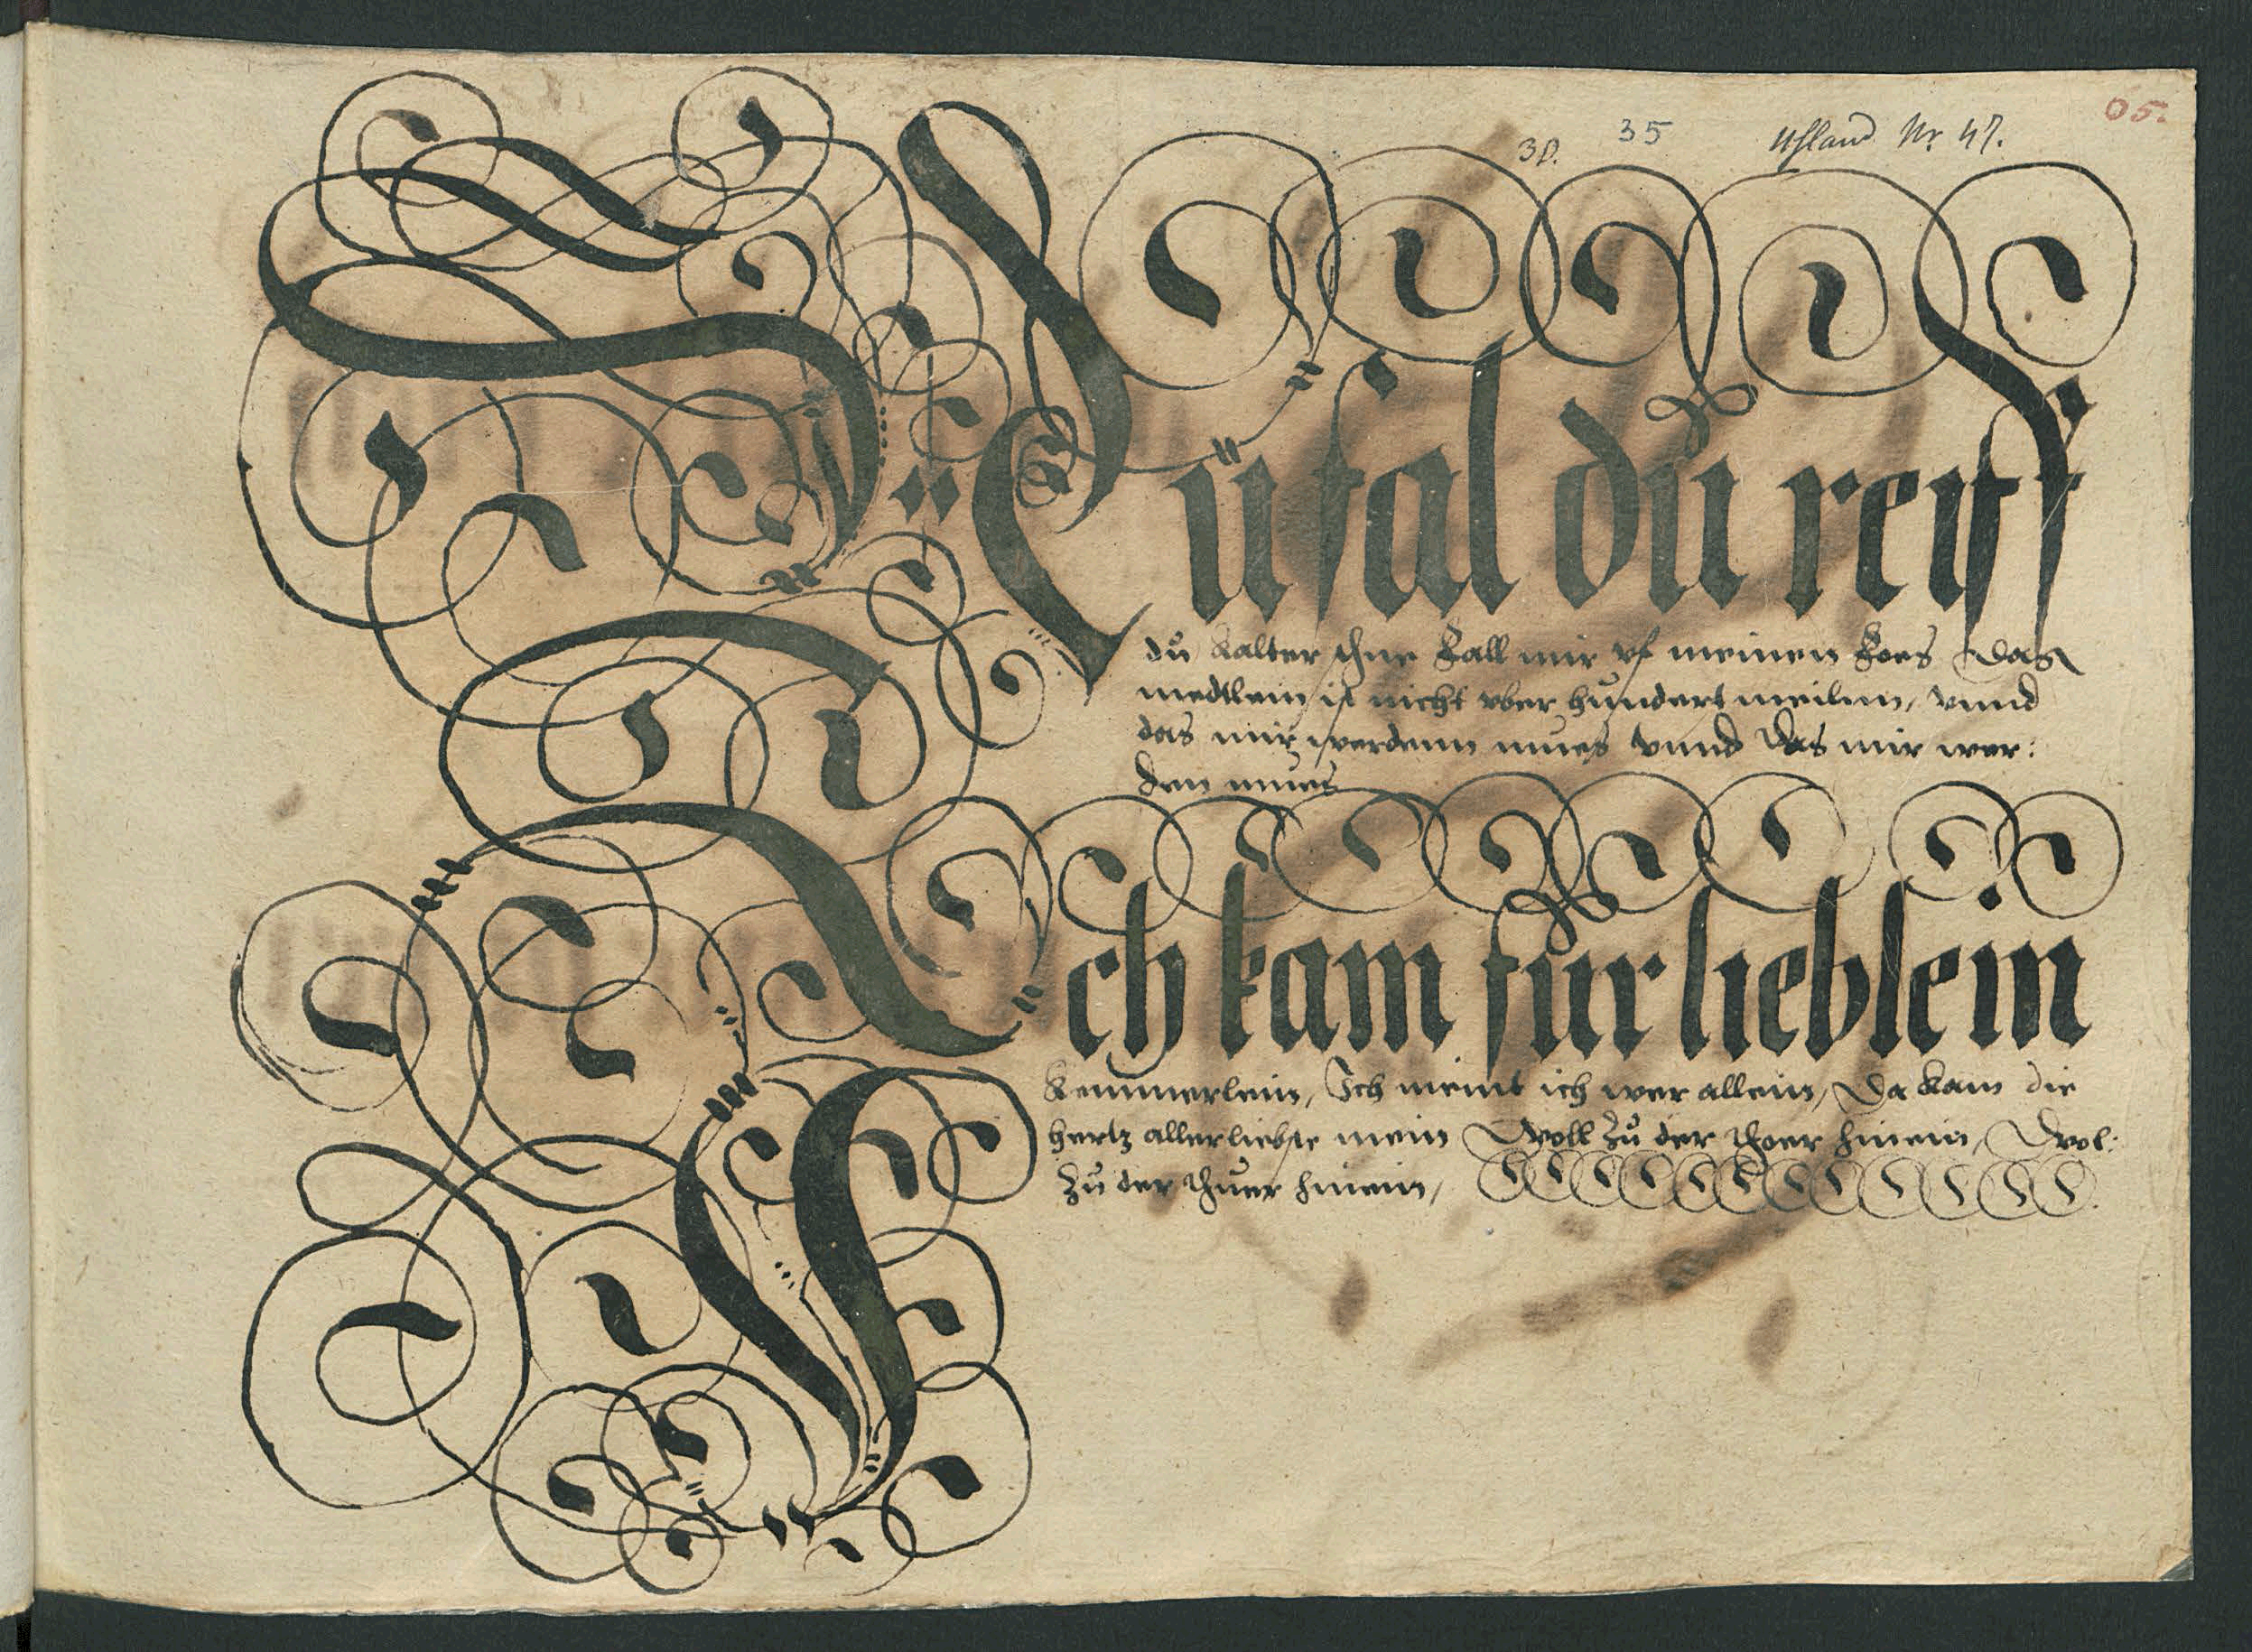 38. 35 Uhland Nr 47. 05.
Nu fal du reiff
du kalter schne Fall mir vf meinen Foes Das
medtlein ist nicht vber hundert meilenn, vnnd
das mir werdenn mues vnnd Das mir wer:
den mues
Ich kam für lieblein
Kemmerlein, Ich meint ich wer allein, Da kam die
hertz allerliebste mein Woll zu der thoer hinein, Wol:
Zu der thuer hinein,